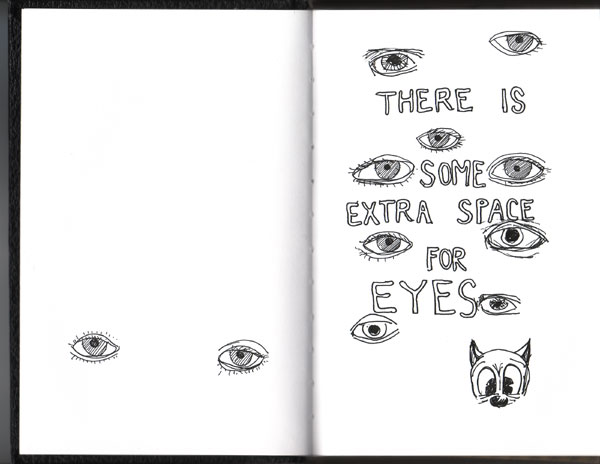 THERE IS
SOME
EXTRA SPACE
FOR
EYES